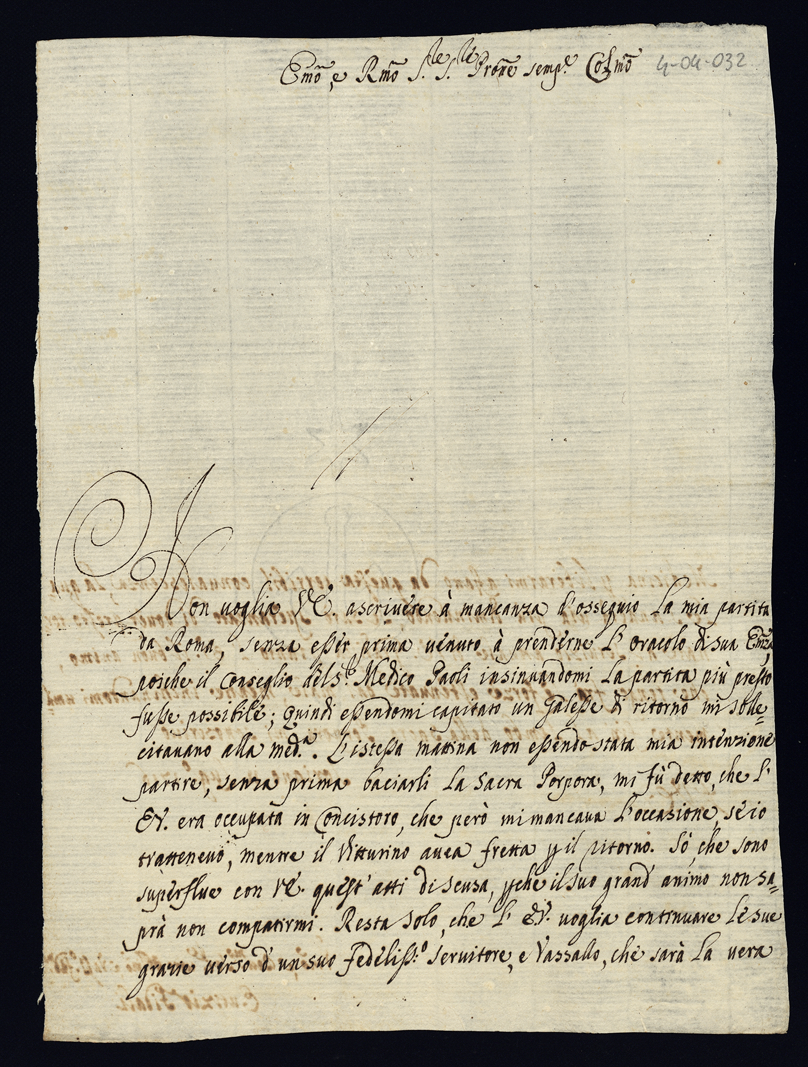 Emo, e Rmo Sre Sre Prone semp.e Colmo 4-04-032
Non voglia V.E. ascrivere à mancanza d'ossequio la mia partita
da Roma, senza esser prima venuto à prenderne l'oracolo di sua Emza,
poiche il Conseglio del S.r Medico Paoli insinuandomi la partita più presto
fusse possibile; quindi essendomi capitato un Galesse di ritorno mi solle=
citavano alla med.a. L'istessa mattina non essendo stata mia intenzione
partire, senza prima baciarli la Sacra Porpora, mi fù detto, che l'
E.V. era occupata in Concistoro, che però mi mancava l'occasione, se io
trattenevo, mentre il Vitturino avea fretta p il ritorno. Sò, che sono
superflue con V.E. quest'atti di scusa, pche il suo grand'animo non sa=
prà non compatirmi. Resta solo, che l'E.V. voglia continuare le sue
grazie verso d'un suo fedeliss:o servitore, e Vassallo, che sarà la vera